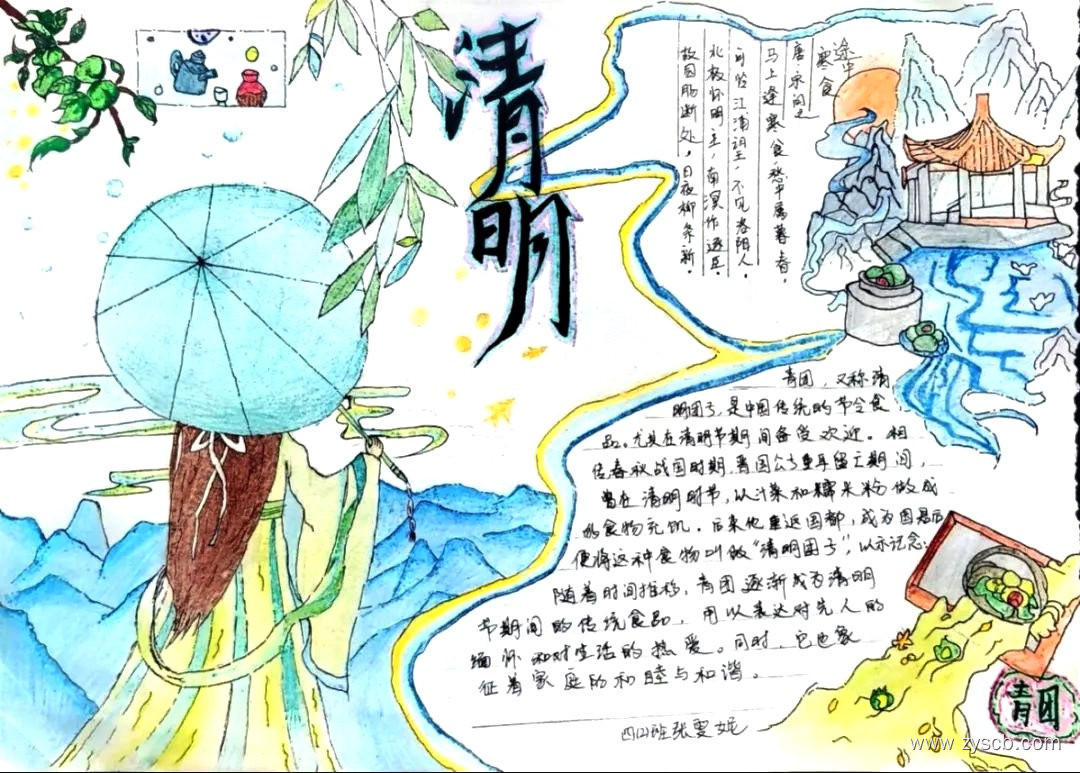 清明
途中寒食
唐·宋问之
马上逢寒食,愁中属暮春。
可怜江浦望,不见洛阳人。
北极怀明主,南溟作逐臣。
故园肠断处,日夜柳条新。
青团,又称清
明团子,是中国传统的节令食
品。尤其在清明节期间备受欢迎。相
传春秋战国时期,晋国公子重耳留亡期间,
曾在清明时节,以汁菜和糯米粉做成
的食物充饥。后来他重返国都,成为国君后
便将这种食物叫做“清明团子”,以示记念;
随着时间推移,青团逐渐成为清明
节期间的传统食品,用以表达对先人的
缅怀和对生活的热爱。同时,它也象
征着家庭的和睦与和谐。
四(2)班张雯妮
青团
www.zyscb.com